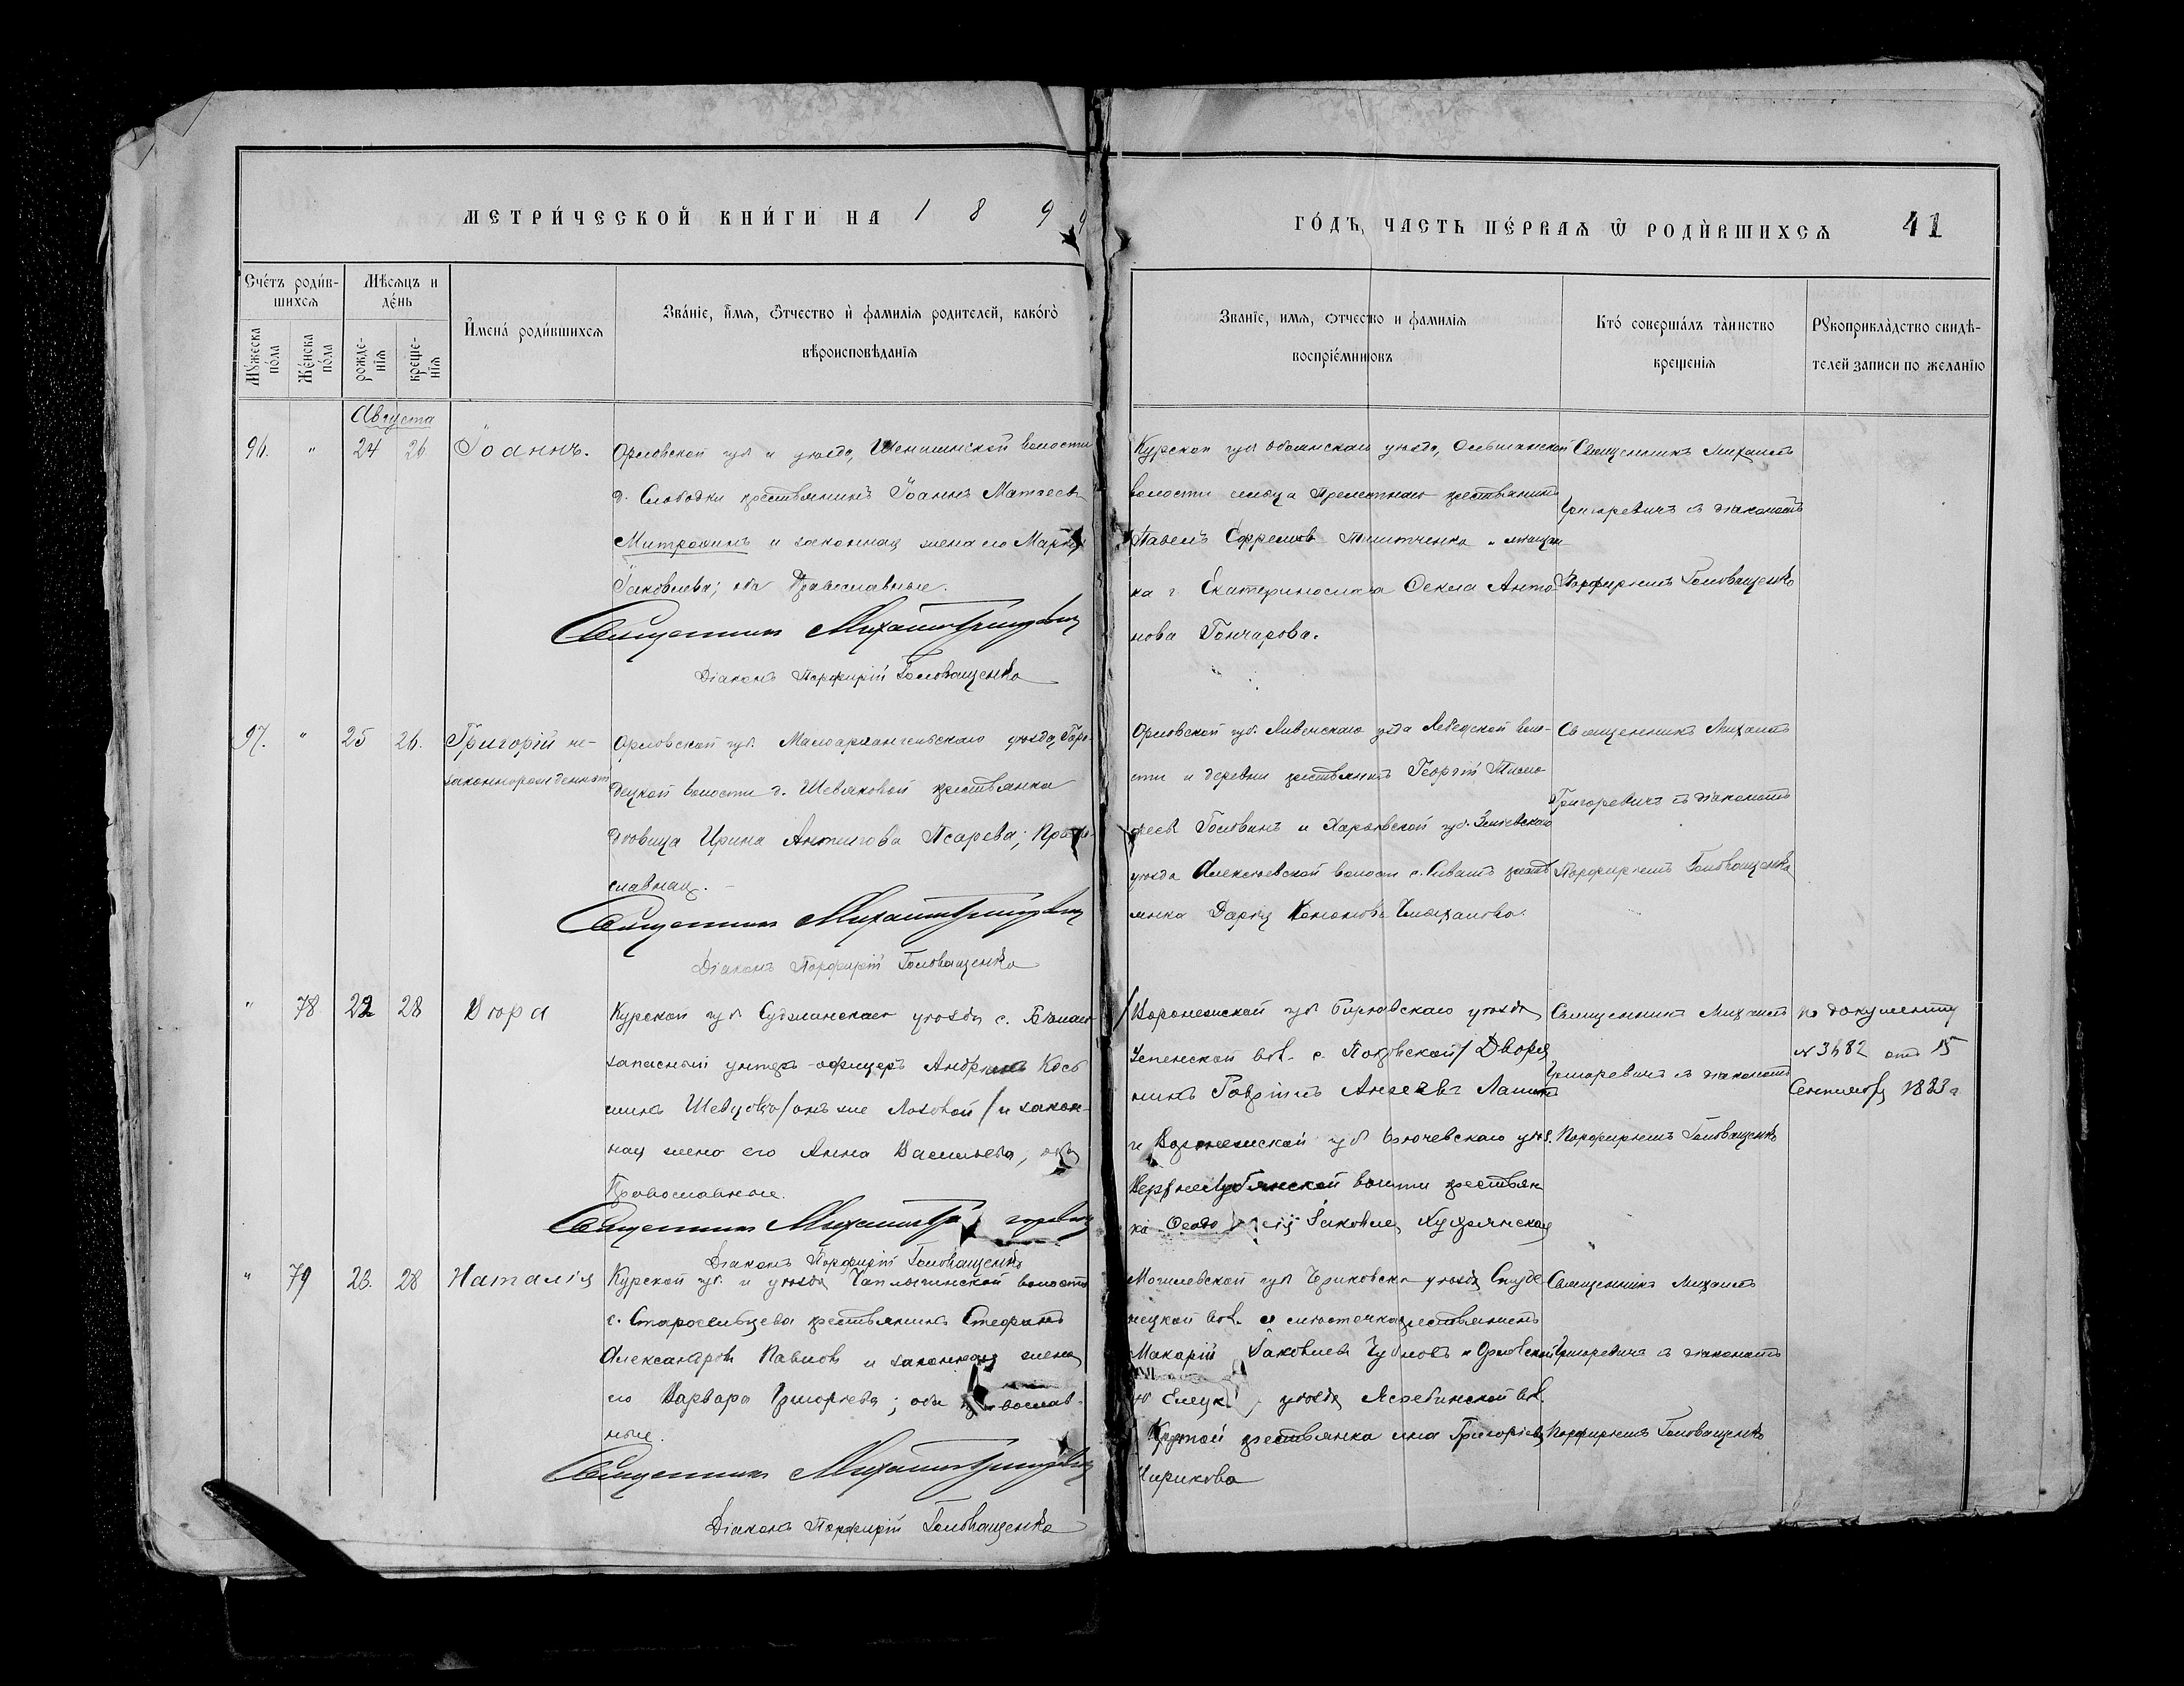 МЕТРИ́ЧЕСКОЙ КНИ́ГИ НА 1 8 9 9
ГО́ДЪ, ЧАСТЬ ПЕ́РВАЯ Ѿ РОДИ́ВШИХСЯ 41
Сче́тъ роди́в-
шихся
Мѣсяцъ и
де́нь
Му́жеска
по́ла
Же́нска
по́ла
рожде-
нія
креще-
нія
И҆мена́ роди́вшихся
Зва́ніе, и҆́мя, ѻ҆́тчество и҆ фамилія родителей, како́гѡ
вѣроисповѣданія
Званіе, имя, ѻтчество и фамилія
воспріе́мниковъ
Кто́ соверша́лъ та́инство
крещенія
Рукоприкла́дство свидѣ-
телей записи по желанію
Августа
96. " 24 26 Іоаннъ.
Орловской губ и уѣзда, волости
д. Слободки крестьянинъ Іоаннъ Матѳеевъ
Митрохинъ и законная жена его Марія
Іаковлева; оба Православные.
Священникъ Михаилъ Григоревичъ
Діаконъ Порфирій Головащенко
Курской губ Обоянскаго уѣзда, Ольшанской
волости сельца крестьянинъ
Павелъ Ефремовъ и мѣщан-
ка г Екатеринослава Ѳекла Анто-
нова Гончарова.
Священникъ Михаилъ
Григоревичъ съ діакономъ
Порфиріемъ Головащенко
97. " 25 26. Григорій не-
законнорожденный
Орловской губ. Малоархангельскаго уѣзда, Горо-
децкой волости д. Шевяковой крестьянка
вдовица Ирина Антипова Псарева; Право-
славная.
Священникъ Михаилъ Григоревичъ
Діаконъ Порфирій Головащенко
Орловской губ. Ливенскаго уѣзда воло-
сти и деревни крестьянинъ Георгій Тимо-
феевъ Головинъ и Харьковской губ. Зміевскаго
уѣзда Алексѣевской волости с. крестъ
янка Дарія Кононова
Священникъ Михаилъ
Григоревичъ съ діакономъ
Порфиріемъ Головащенко
" 78 22 28 Вѣра
Курской губ Суджанскаго уѣзда с.
запасный унтеръ-офицеръ Андріанъ Кось
минъ Шевцовъ /онъ же Лозовой/ и закон-
ная жена его Анна Васильева, оба
Православные.
Священникъ Михаилъ Григоревичъ
Діаконъ Порфирій Головащенко
/Воронежской губ Бирюческаго уѣзда
Успенской вол. с. Покровской/ Дворя
нинъ Гавріилъ
и Воронежской губ Бирючевскаго уѣз.
Верхнелубянской волости крестьян
ка Іаковлева
Священникъ Михаилъ
Григоревичъ съ діакономъ
Порфиріемъ Головащенко
по документу
№ 3482 отъ 15
Сентября 1883 г
" 79 26. 28 Наталія
Курской губ. и уѣзда Чаплыгинской волости
с. Старосельцева крестьянинъ Стефанъ
Александровъ Павловъ и законная жена
его Варвара Григорьева; оба православ-
ные.
Священникъ Михаилъ Григоревичъ
Діаконъ Порфирій Головащенко
Могилевской губ Чериковскаго уѣзда Студе
нецкой вол. и мѣстечка крестьянинъ
Макарій Іаковлевъ и Орловской
Елецк уѣзда вол.
Крутой крестьянка Григоріева
Чирикова
Священникъ Михаилъ
Григоревичъ съ діакономъ
Порфиріемъ Головащенко